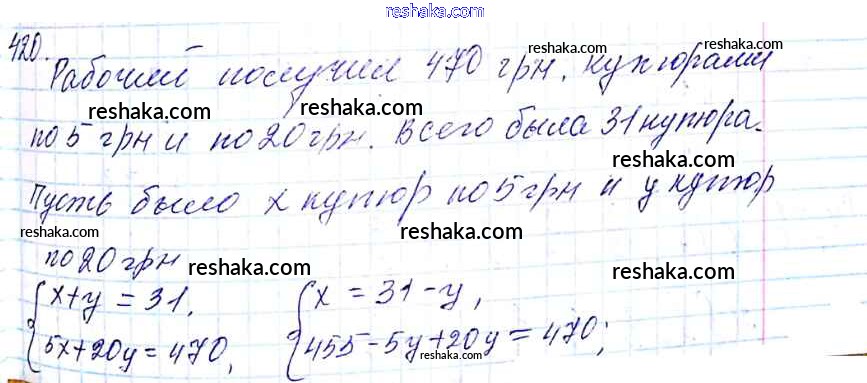 reshaka.com
420.
Рабочий получил 470 грн. купюрами
reshaka.com
reshaka.com reshaka.com
по 5 грн и по 20 грн. Всего была 31 купюра.
reshaka.com
Пусть было х купюр по 5 грн и у купюр
reshaka.com
по 20 грн
reshaka.com reshaka.com
{x+y=31, {x=31-y,
reshaka.com
5x+20y=470, 455-5y+20y=470;
reshaka.com